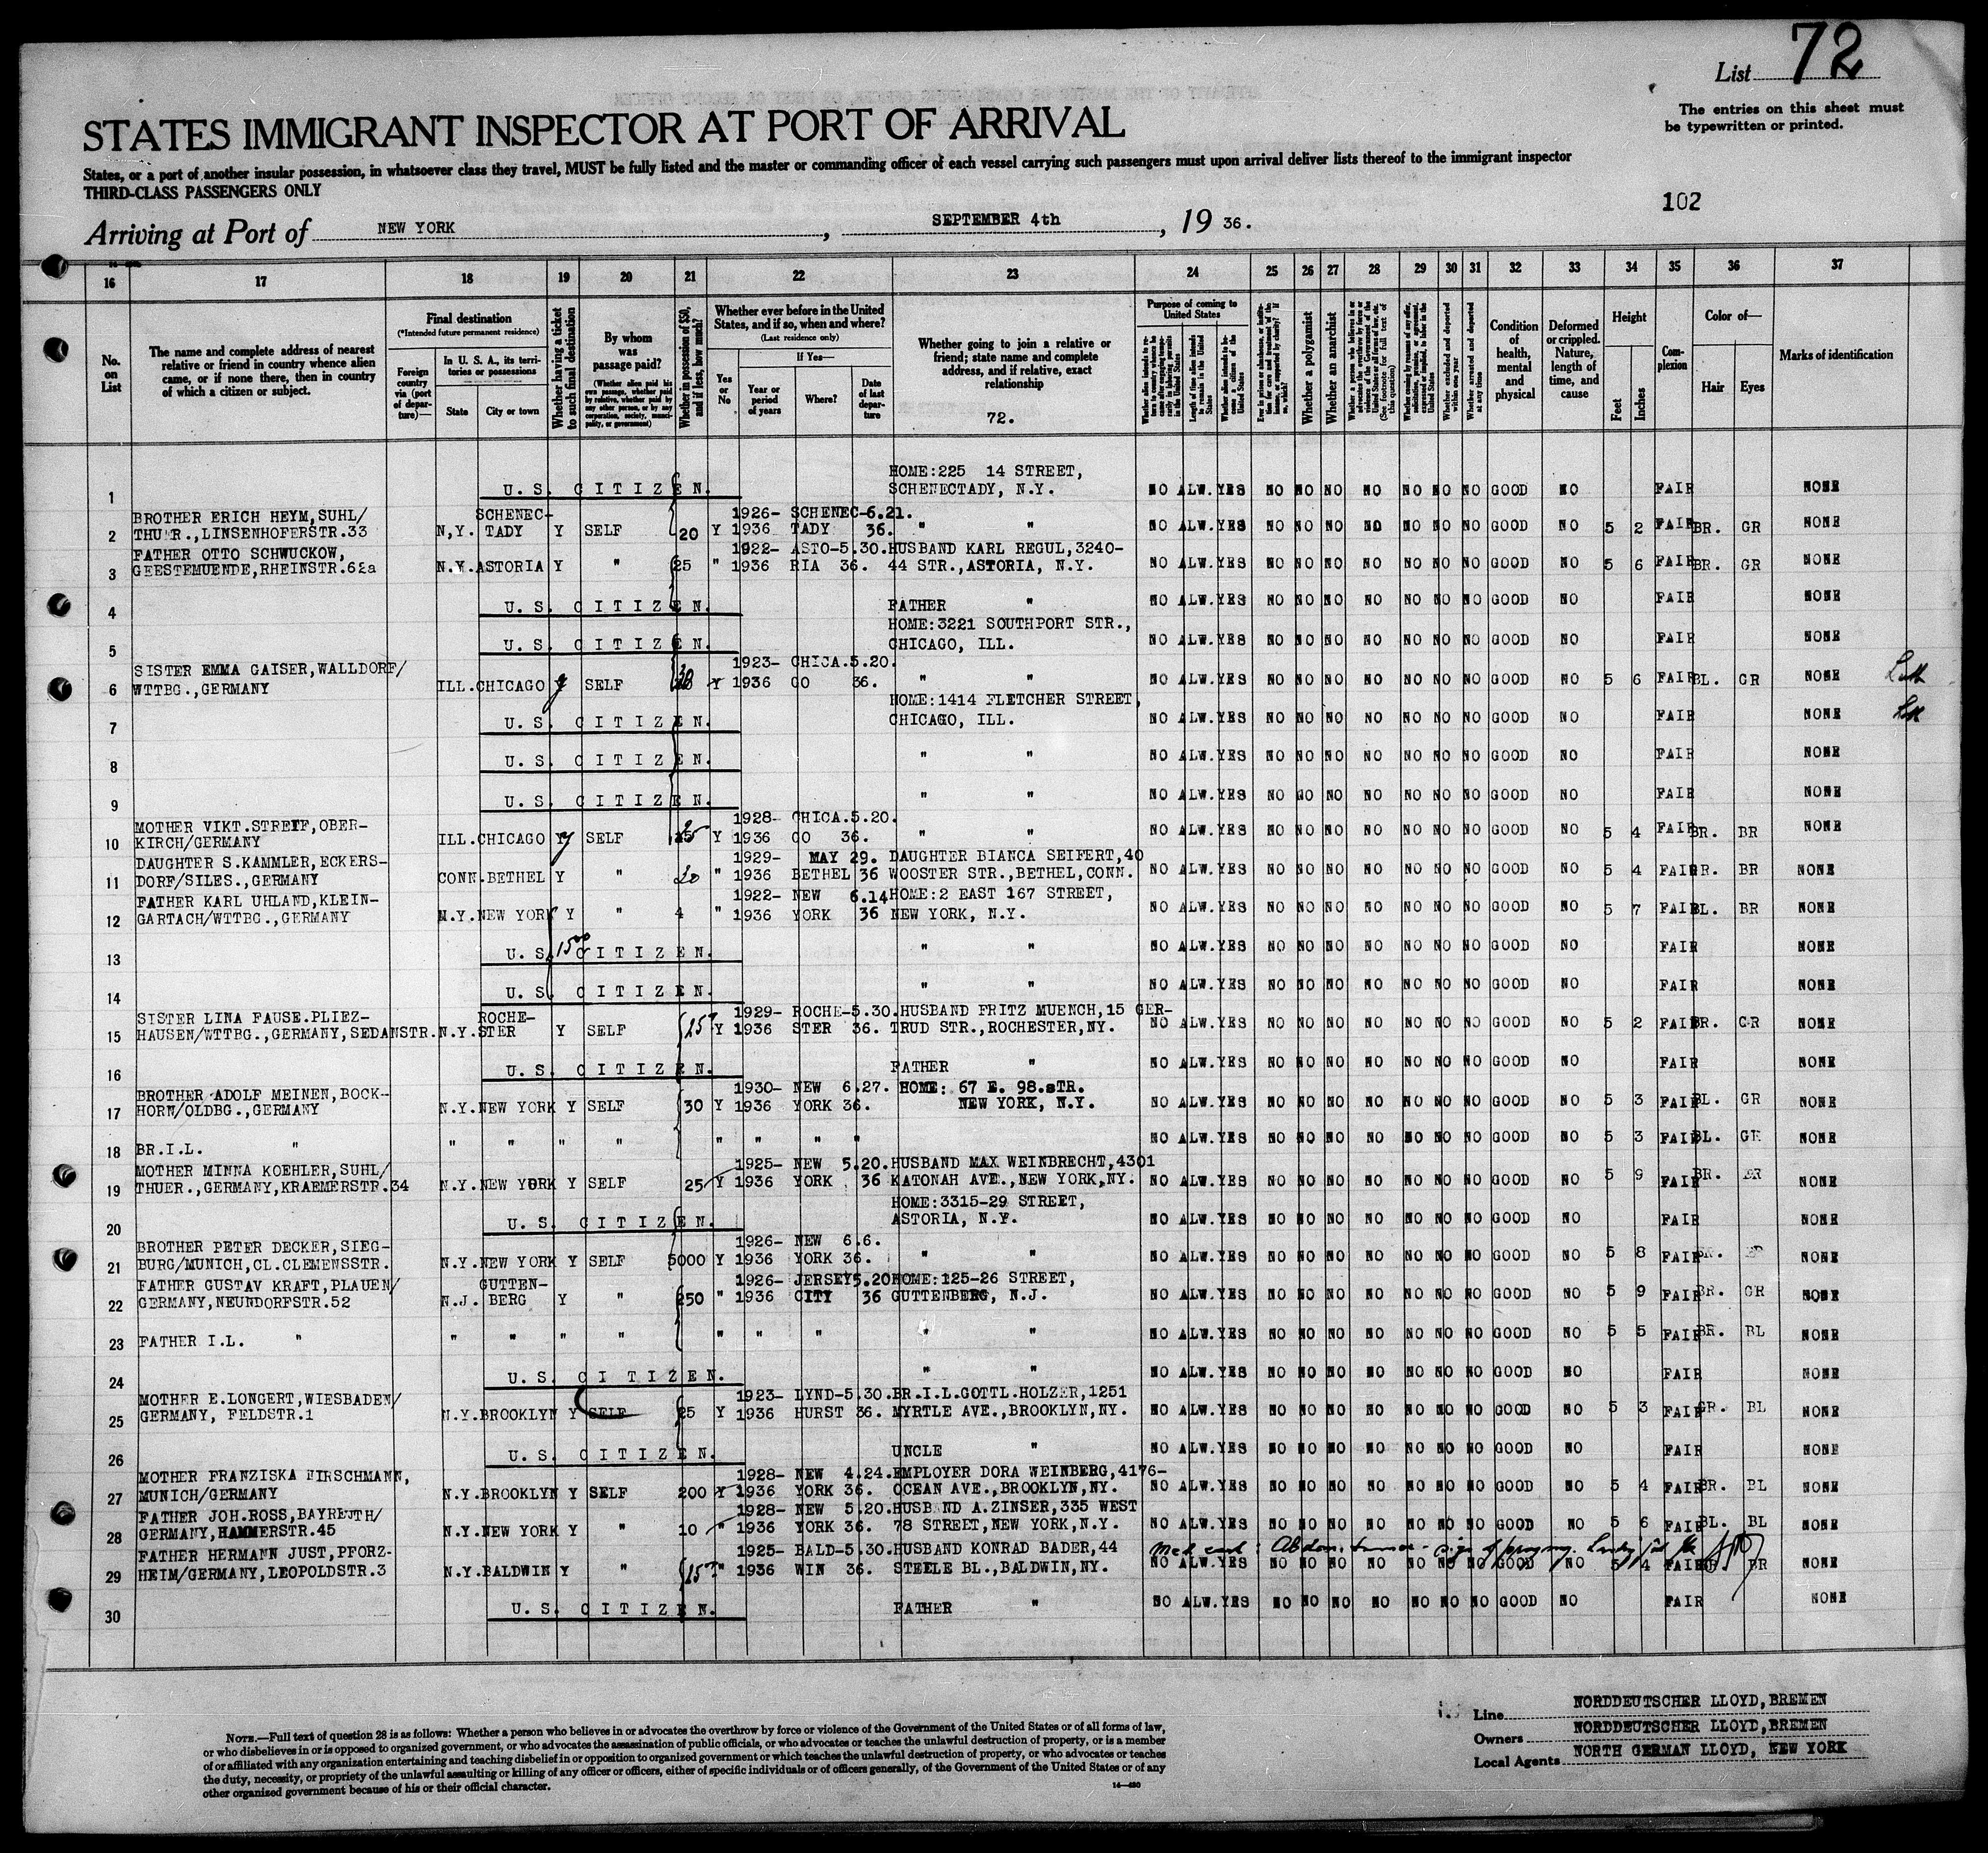 List 72
The entries on this sheet must
be typewritten or printed.
STATES IMMIGRANT INSPECTOR AT PORT OF ARRIVAL
States, or a port of another insular possession, in whatsoever class they travel, MUST be fully listed and the master or commanding officer of each vessel carrying such passengers must upon arrival deliver lists thereof to the immigrant inspector
THIRD-CLASS PASSENGERS ONLY
102
Arriving at Port of NEW YORK, SEPTEMBER 4th, 19 36.
16 17 18 19 20 21 22 23 24 25 26 27 28 29 30 31 32 33 34 35 36 37
No. on List
The name and complete address of nearest
relative or friend in country whence alien
came, or if none there, then in country
of which a citizen or subject.
Final destination
(*Intended future permanent residence)
Foreign country via (port of departure)—
In U. S. A., its territories or possessions
State
City or town
Whether having a ticket to such final destination
By whom was passage paid?
(Whether alien paid his own passage, whether paid by relative, whether paid by any other person, or by any corporation, society, municipality, or government)
Whether in possession of $50, and if less, how much?
Whether ever before in the United States, and if so, when and where?
(Last residence only)
Yes or No
If Yes—
Year or period of years
Where?
Date of last departure
Whether going to join a relative or
friend; state name and complete
address, and if relative, exact
relationship
72.
Purpose of coming to United States
Length of time alien intends to remain in the United States
Whether alien intends to become a citizen of the United States
Whether a polygamist
Whether an anarchist
(See footnote for full text of this question)
Whether excluded and deported within one year
Whether arrested and deported at any time
Condition of health, mental and physical
Deformed or crippled. Nature, length of time, and cause
Height
Feet
Inches
Complexion
Color of—
Hair
Eyes
Marks of identification
1 U. S. CITIZEN. HOME:225 14 STREET, SCHENECTADY, N.Y. NO ALW. YES NO NO NO NO NO NO NO GOOD NO FAIR NONE
2 BROTHER ERICH HEYM, SUHL/ THUER., LINSENHOFERSTR.33 N.Y. SCHENECTADY Y SELF 20 Y 1926-1936 SCHENECTADY 6.21.36. " " NO ALW. YES NO NO NO NO NO NO NO GOOD NO 5 2 FAIR BR. GR NONE
3 FATHER OTTO SCHWUCKOW, GEESTEMUENDE, RHEINSTR.62a N.Y. ASTORIA Y " 25 " 1922-1936 ASTORIA 5.30.36. HUSBAND KARL REGUL, 3240-44 STR., ASTORIA, N.Y. NO ALW. YES NO NO NO NO NO NO NO GOOD NO 5 6 FAIR BR. GR NONE
4 U. S. CITIZEN. FATHER " NO ALW. YES NO NO NO NO NO NO NO GOOD NO FAIR NONE
5 U. S. CITIZEN. HOME:3221 SOUTHPORT STR., CHICAGO, ILL. NO ALW. YES NO NO NO NO NO NO NO GOOD NO FAIR NONE
6 SISTER EMMA GAISER, WALLDORF/ WTTBG., GERMANY ILL. CHICAGO y SELF Y 1923-1936 CHICAGO 5.20.36. " " NO ALW. YES NO NO NO NO NO NO NO GOOD NO 5 6 FAIR BL. GR NONE
7 U. S. CITIZEN. HOME:1414 FLETCHER STREET, CHICAGO, ILL. NO ALW. YES NO NO NO NO NO NO NO GOOD NO FAIR NONE
8 U. S. CITIZEN. " " NO ALW. YES NO NO NO NO NO NO NO GOOD NO FAIR NONE
9 U. S. CITIZEN. " " NO ALW. YES NO NO NO NO NO NO NO GOOD NO FAIR NONE
10 MOTHER VIKT. STREIF, OBERKIRCH/GERMANY ILL. CHICAGO y SELF Y 1928-1936 CHICAGO 5.20.36. " " NO ALW. YES NO NO NO NO NO NO NO GOOD NO 5 4 FAIR BR. BR NONE
11 DAUGHTER S.KAMMLER, ECKERSDORF/SILES., GERMANY CONN. BETHEL Y " 20 " 1929-1936 BETHEL MAY 29. 36 DAUGHTER BIANCA SEIFERT, 40 WOOSTER STR., BETHEL, CONN. NO ALW. YES NO NO NO NO NO NO NO GOOD NO 5 4 FAIR GR. BR NONE
12 FATHER KARL UHLAND, KLEINGARTACH/WTTBG., GERMANY N.Y. NEW YORK Y " 4 " 1922-1936 NEW YORK 6.14 36 HOME:2 EAST 167 STREET, NEW YORK, N.Y. NO ALW. YES NO NO NO NO NO NO NO GOOD NO 5 7 FAIR BL. BR NONE
13 U. S. CITIZEN. 1500 " " NO ALW. YES NO NO NO NO NO NO NO GOOD NO FAIR NONE
14 U. S. CITIZEN. " " NO ALW. YES NO NO NO NO NO NO NO GOOD NO FAIR NONE
15 SISTER LINA FAUSE. PLIEZHAUSEN/WTTBG., GERMANY, SEDANSTR. N.Y. ROCHESTER Y SELF Y 1929-1936 ROCHESTER 5.30.36. HUSBAND FRITZ MUENCH, 15 GERTRUD STR., ROCHESTER, NY. NO ALW. YES NO NO NO NO NO NO NO GOOD NO 5 2 FAIR BR. GR NONE
16 U. S. CITIZEN. FATHER " NO ALW. YES NO NO NO NO NO NO NO GOOD NO FAIR NONE
17 BROTHER ADOLF MEINEN, BOCKHORN/OLDBG., GERMANY N.Y. NEW YORK Y SELF 30 Y 1930-1936 NEW YORK 6.27.36. HOME: 67 E. 98.sTR. NEW YORK, N.Y. NO ALW. YES NO NO NO NO NO NO NO GOOD NO 5 3 FAIR BL. GR NONE
18 BR.I.L. " " " " " " " " " NO ALW. YES NO NO NO NO NO NO NO GOOD NO 5 3 FAIR BL. GR NONE
19 MOTHER MINNA KOEHLER, SUHL/ THUER., GERMANY, KRAEMERSTR.34 N.Y. NEW YORK Y SELF 25 Y 1925-1936 NEW YORK 5.20.36 HUSBAND MAX WEINBRECHT, 4301 KATONAH AVE., NEW YORK, NY. NO ALW. YES NO NO NO NO NO NO NO GOOD NO 5 9 FAIR BR. NONE
20 U. S. CITIZEN. HOME:3315-29 STREET, ASTORIA, N.Y. NO ALW. YES NO NO NO NO NO NO NO GOOD NO FAIR NONE
21 BROTHER PETER DECKER, SIEGBURG/MUNICH, CL.CLEMENSSTR. N.Y. NEW YORK Y SELF 5000 Y 1926-1936 NEW YORK 6.6.36. " " NO ALW. YES NO NO NO NO NO NO NO GOOD NO 5 8 FAIR NONE
22 FATHER GUSTAV KRAFT, PLAUEN/ GERMANY, NEUNDORFSTR.52 N.J. GUTTENBERG Y " 250 " 1926-1936 JERSEY CITY 5.20 36 HOME:125-26 STREET, GUTTENBERG, N.J. NO ALW. YES NO NO NO NO NO NO NO GOOD NO 5 9 FAIR BR. GR NONE
23 FATHER I.L. " " " " " " " " " " NO ALW. YES NO NO NO NO NO NO NO GOOD NO 5 5 FAIR BR. BL NONE
24 U. S. CITIZEN. " " NO ALW. YES NO NO NO NO NO NO NO GOOD NO FAIR NONE
25 MOTHER E.LONGERT, WIESBADEN/ GERMANY, FELDSTR.1 N.Y. BROOKLYN Y SELF 25 Y 1923-1936 LYNDHURST 5.30.36. BR.I.L.GOTTL.HOLZER, 1251 MYRTLE AVE., BROOKLYN, NY. NO ALW. YES NO NO NO NO NO NO NO GOOD NO 5 3 FAIR GR. BL NONE
26 U. S. CITIZEN. UNCLE " NO ALW. YES NO NO NO NO NO NO NO GOOD NO FAIR NONE
27 MOTHER FRANZISKA HIRSCHMANN, MUNICH/GERMANY N.Y. BROOKLYN Y SELF 200 Y 1928-1936 NEW YORK 4.24.36. EMPLOYER DORA WEINBERG, 4176-OCEAN AVE., BROOKLYN, NY. NO ALW. YES NO NO NO NO NO NO NO GOOD NO 5 4 FAIR BR. BL NONE
28 FATHER JOH.ROSS, BAYREUTH/ GERMANY, HAMMERSTR.45 N.Y. NEW YORK Y " 10 " 1928-1936 NEW YORK 5.20.36. HUSBAND A.ZINSER, 335 WEST 78 STREET, NEW YORK, N.Y. NO ALW. YES NO NO NO NO NO NO NO GOOD NO 5 6 FAIR BL. BL NONE
29 FATHER HERMANN JUST, PFORZHEIM/GERMANY, LEOPOLDSTR.3 N.Y. BALDWIN Y " " 1925-1936 BALDWIN 5.30.36. HUSBAND KONRAD BADER, 44 STEELE BL., BALDWIN, NY. NO ALW. YES NO NO NO NO NO NO NO GOOD NO 5 4 FAIR BR NONE
30 U. S. CITIZEN. FATHER " NO ALW. YES NO NO NO NO NO NO NO GOOD NO FAIR NONE
NOTE.—Full text of question 28 is as follows: Whether a person who believes in or advocates the overthrow by force or violence of the Government of the United States or of all forms of law,
or who disbelieves in or is opposed to organized government, or who advocates the assassination of public officials, or who advocates or teaches the unlawful destruction of property, or is a member
of or affiliated with any organization entertaining and teaching disbelief in or opposition to organized government or which teaches the unlawful destruction of property, or who advocates or teaches
the duty, necessity, or propriety of the unlawful assaulting or killing of any officer or officers, either of specific individuals or of officers generally, of the Government of the United States or of any
other organized government because of his or their official character.
Line NORDDEUTSCHER LLOYD, BREMEN
Owners NORDDEUTSCHER LLOYD, BREMEN
Local Agents NORTH GERMAN LLOYD, NEW YORK